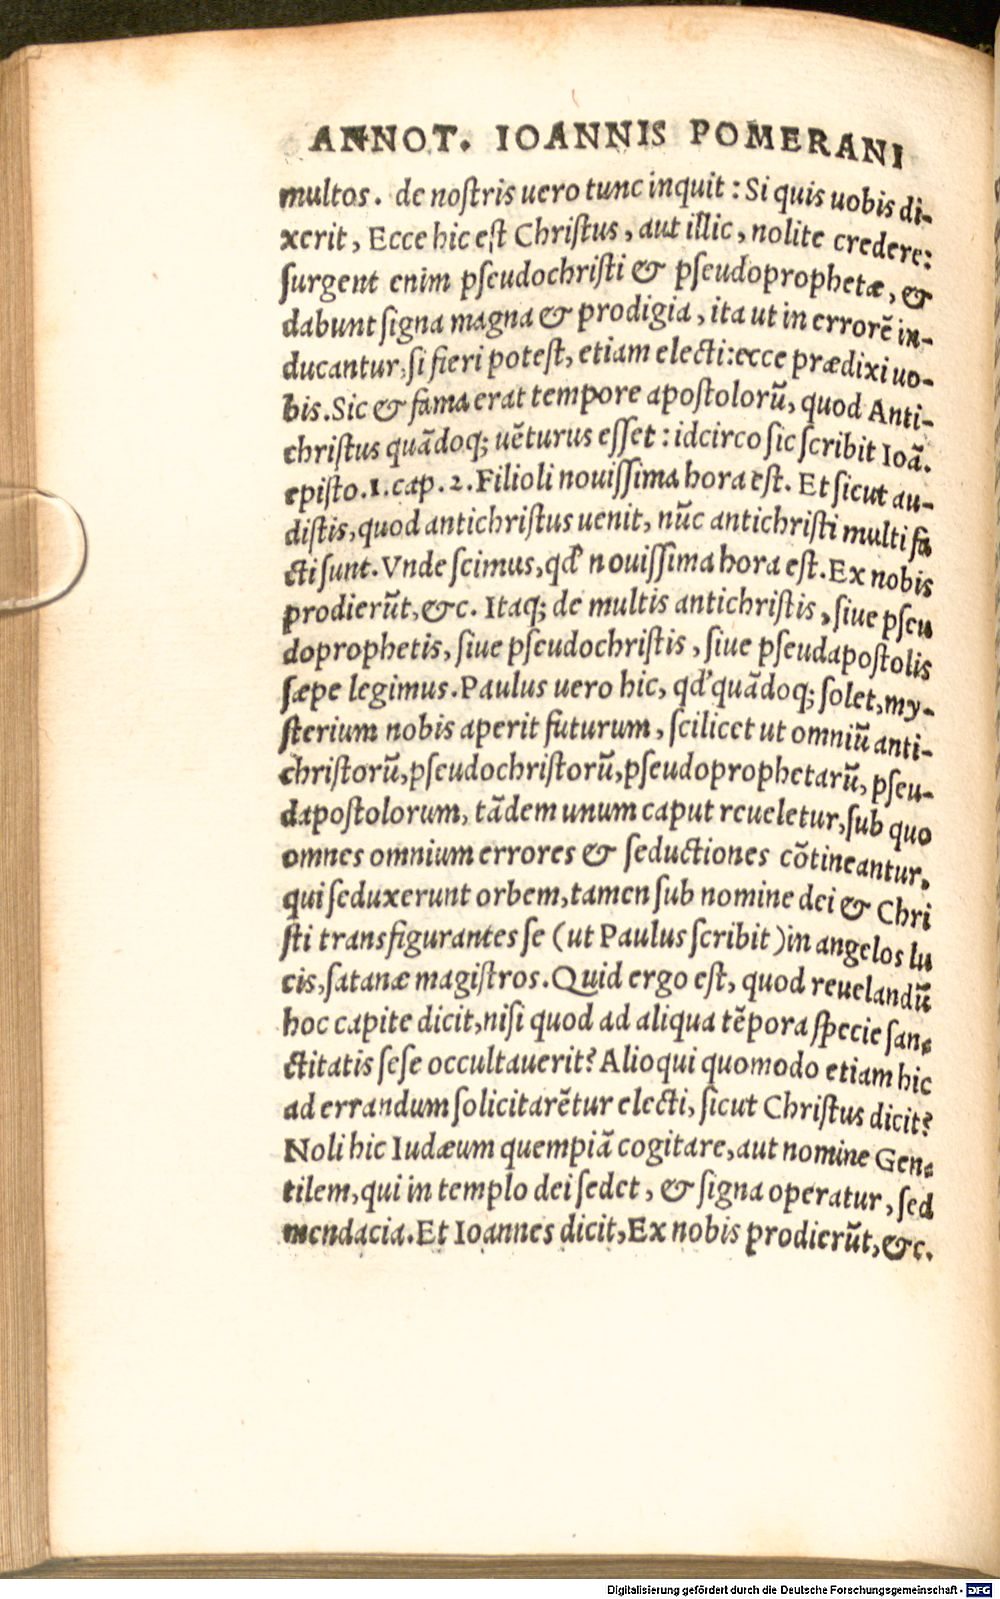 ANNOT. IOANNIS POMERANI
multos. de noſtris uero tunc inquit: Si quis uobis di-
xerit, Ecce hic eſt Chriſtus, aut illic, nolite credere:
ſurgent enim pſeudochriſti & pſeudoprophetæ, &
dabunt ſigna magna & prodigia, ita ut in errorẽ in-
ducantur, ſi fieri poteſt, etiam electi: ecce prædixi uo-
bis. Sic & fama erat tempore apoſtolorũ, quod Anti-
chriſtus quãdoq; uẽturus eſſet: idcirco ſic ſcribit Ioã.
epiſto. 1. cap. 2. Filioli nouiſſima hora eſt. Et ſicut au-
diſtis, quod antichriſtus uenit, nũc antichriſti multi fa
cti ſunt. Vnde ſcimus, qd' nouiſſima hora eſt. Ex nobis
prodierũt, &c. Itaq; de multis antichriſtis, ſiue pſeu
doprophetis, ſiue pſeudochriſtis, ſiue pſeudapoſtolis
ſæpe legimus. Paulus uero hic, qd' quãdoq; ſolet, my-
ſterium nobis aperit futurum, ſcilicet ut omniũ anti-
chriſtorũ, pſeudochriſtorũ, pſeudoprophetarũ, pſeu-
dapoſtolorum, tãdem unum caput reueletur, ſub quo
omnes omnium errores & ſeductiones cõtineantur,
qui ſeduxerunt orbem, tamen ſub nomine dei & Chri
ſti transfigurantes ſe (ut Paulus ſcribit) in angelos lu
cis, ſatanæ magiſtros. Quid ergo eſt, quod reuelandũ
hoc capite dicit, niſi quod ad aliqua tẽpora ſpecie ſan-
ctitatis ſeſe occultauerit? Alioqui quomodo etiam hic
ad errandum ſolicitarẽtur electi, ſicut Chriſtus dicit?
Noli hic Iudæum quempiã cogitare, aut nomine Gen-
tilem, qui in templo dei ſedet, & ſigna operatur, ſed
mendacia. Et Ioannes dicit, Ex nobis prodierũt, &c.
Digitalisierung gefördert durch die Deutsche Forschungsgemeinschaft - DFG